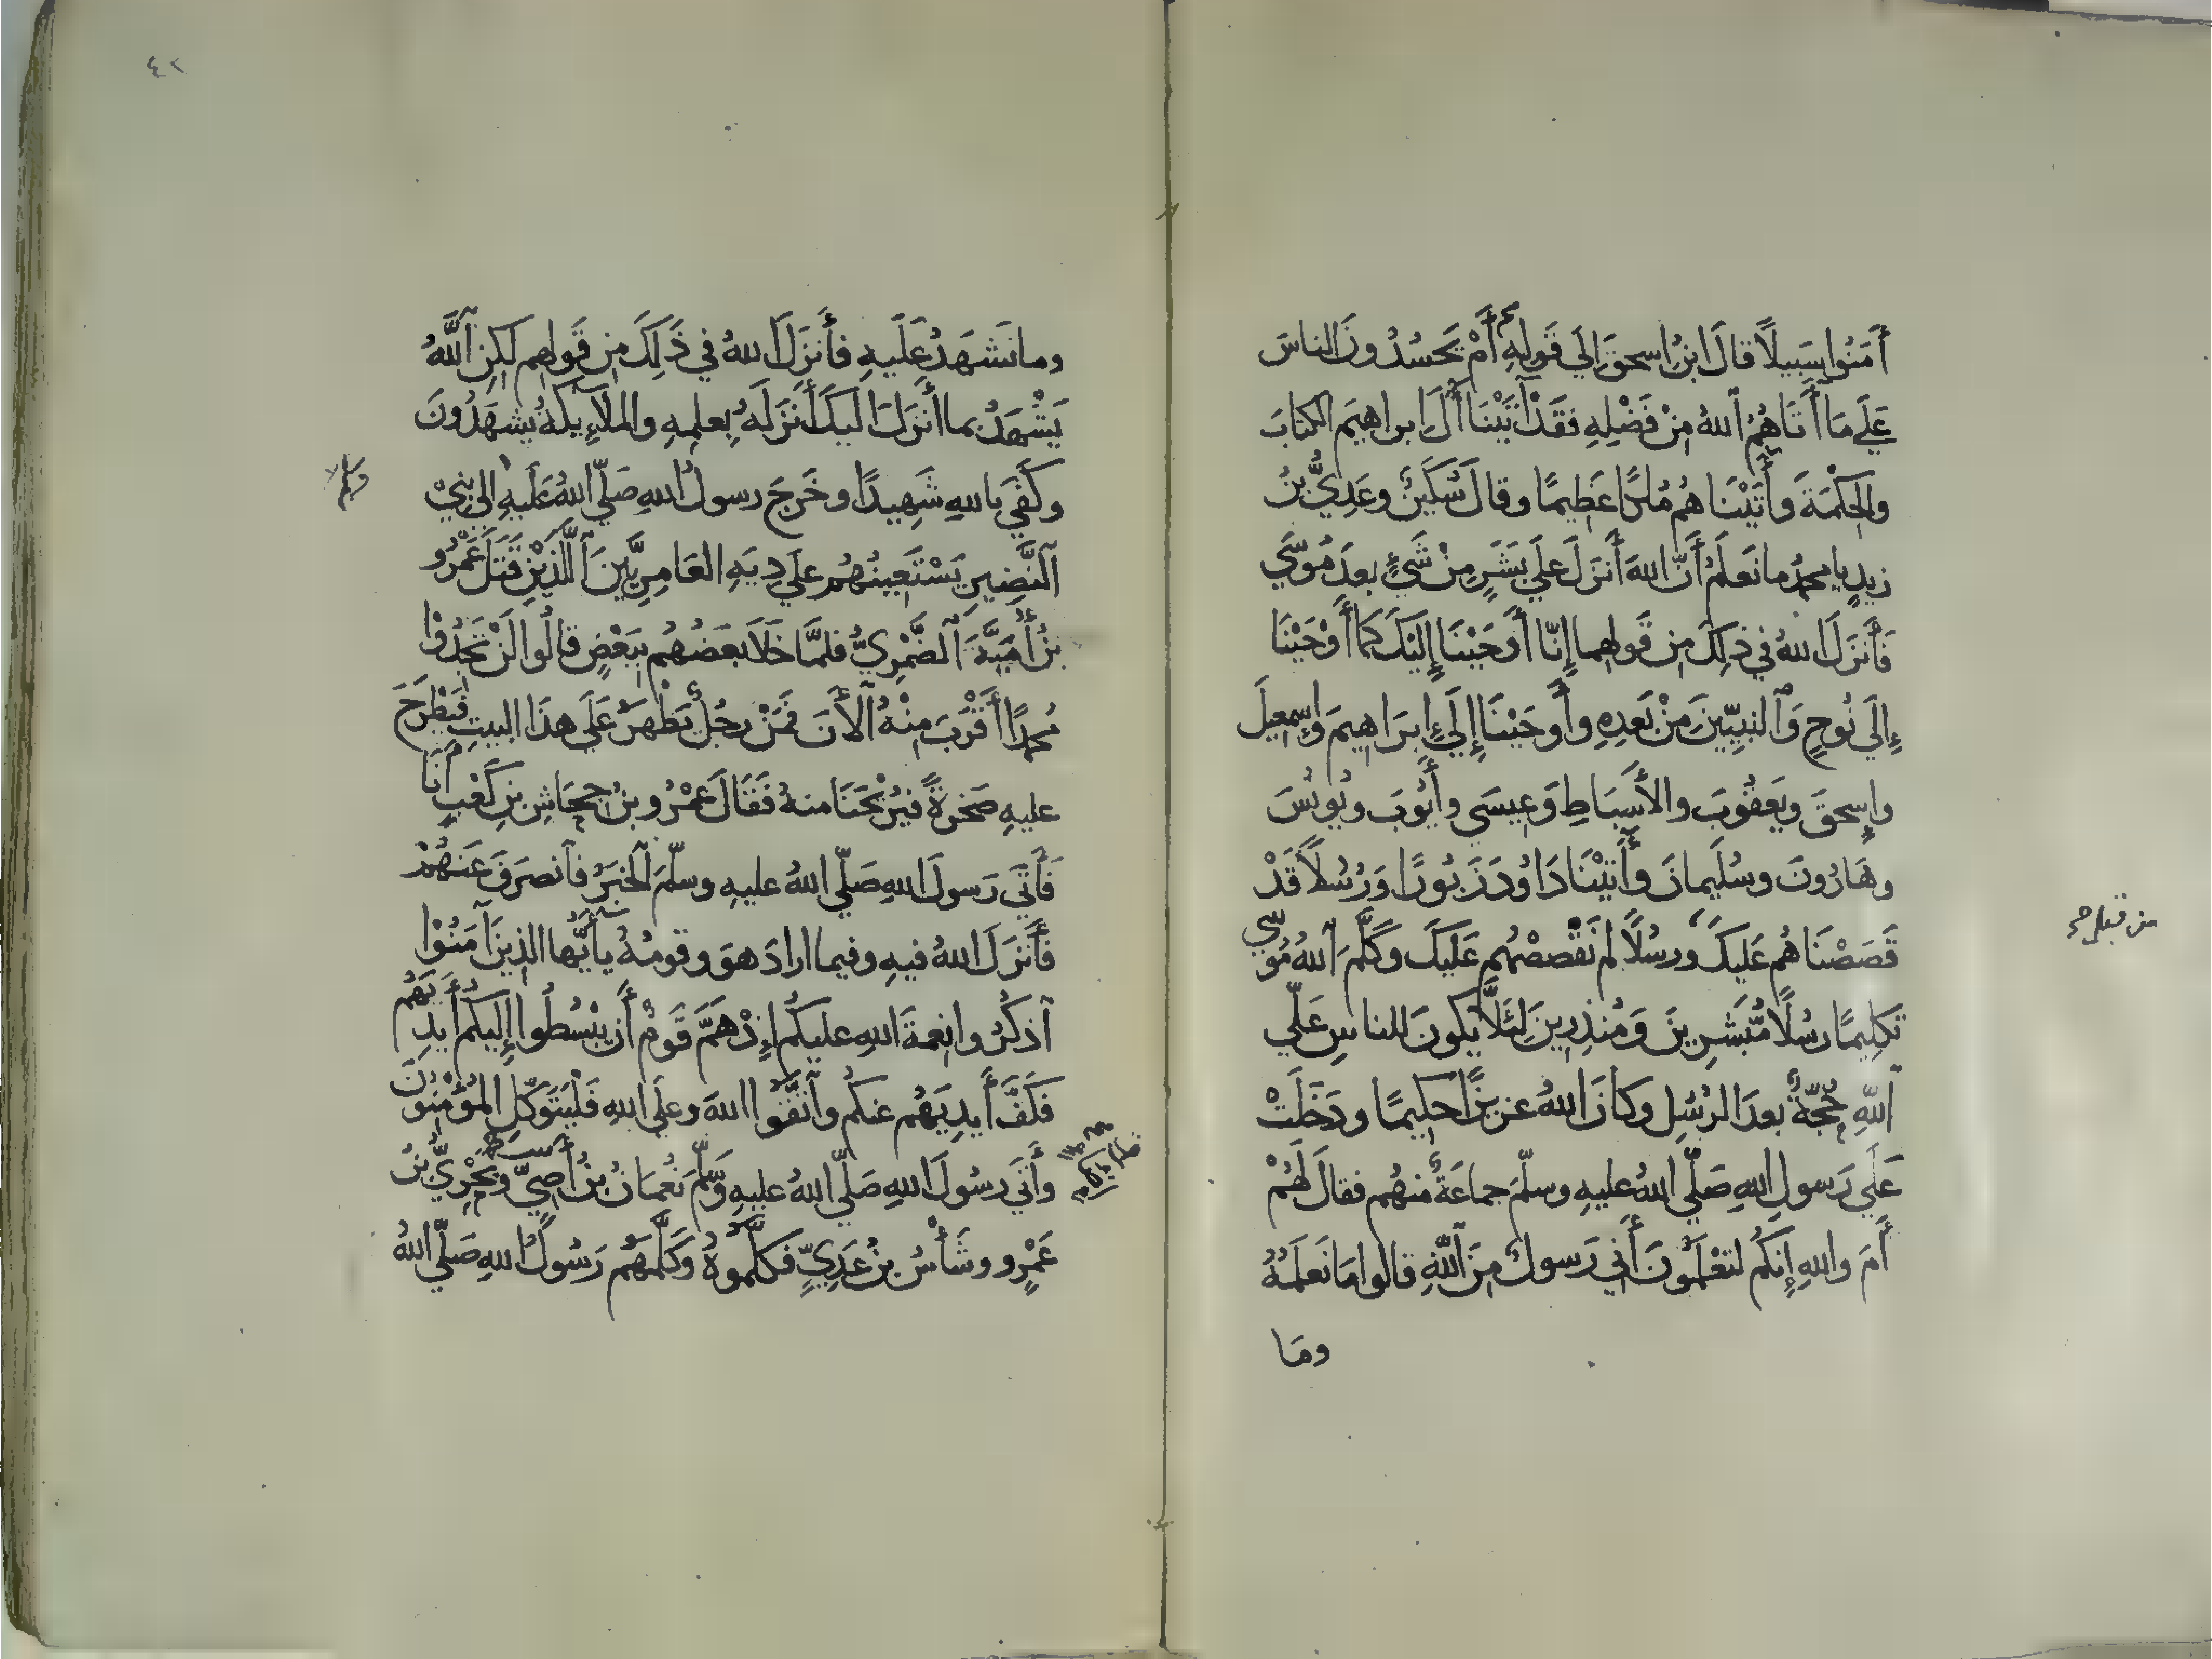 أَمَنُوا سَبِيلًا قالَ ابنُ اسحقَ الي قَولِهِ أَمْ يَحسُدُونَ الناسَ
عَلَي مَا أَتَاهُمُ اللهُ مِنْ فَضْلِهِ فقَدْ أتَيْنَا أَلَ ابراهيمَ الكتابَ
والحِكْمَةَ وأَتَيْنَا هُم مُلكًا عَظِيمًا وقالَ سُكَينٌ وعَدِيُّ بنُ
زيدٍ يا محمدُ ما نَعلَمُ أَنَّ اللهَ أَنزلَ علَي بَشَرٍ مِنْ شَيٍ بعدَ مُوسَي
فَأَنزَلَ اللهُ في ذلِكَ مِن قَولِهِما إِنّا أَوحَيْنَا إِلَيْكَ كَما أَوْحَيْنَا
إِلَي نُوحٍ وَالنبِيِّينَ مِنْ بَعدِهِ وأَوحَيْنَا إِلَي إِبرَاهِيمَ وَإِسمعِيلَ
وإِسحقَ ويَعقُوبَ والأَسبَاطِ وَعِيسَي وأَيُّوبَ ويُونُسَ
وهَارُونَ وسُلَيمانَ وأَتَيْنَا دَاوُدَ زَبُورًا وَرُسُلًا قَدْ
قَصَصْنَا هُم عَلَيكَ ورسُلًا لم نَقْصصْهُم عَلَيكَ وَكَلَّمَ اللهُ مُوسَي
تَكلِيمًا رسُلًا مُبَشِرِينَ وَمُنذِرِينَ لِئَلَّا يكونَ للناسِ عَلَي
اللهِ حُجّةٌ بعدَ الرُسُلِ وكانَ اللهُ عزيزًا حكيمًا ودَخَلَتْ
عَلَي رَسولِ اللهِ صَلَّي اللهُ عليهِ وسلَّمَ جماعَةٌ منهُم فقالَ لَهُمْ
أَمَ واللهِ إِنكُم لتَعْلَمُونَ أَني رَسولٌ مِنَ اللهِ قالوا مَا نَعلَمُهُ
ومَا
من قبل
٤٢
وما نَشهَدُ عَلَيهِ فأَنزَلَ اللهُ في ذَلِكَ مِن قَولهِم لكِنِ اللهُ
يَشْهَدُ بما أَنزلَ الَيكَ أَنزَلَهُ بِعلمِهِ والملآئِكةُ يشهَدُونَ
وكَفَي باللهِ شَهِيدًا وخَرجَ رسولُ اللهِ صَلّي اللهُ عَلَيهِ الي بَنِي
وسلم
النَّضِيرِ يَسْتَعِينُهُم علَي دِيَةِ العَامِرِيَّينَ الَّلذَيْنِ قَتَلَ عَمْرُو
بنُ أُمَيَّةَ الضَّمْرِيُّ فلمَّا خَلَا بَعَضُهُم بِبَعْضٍ قالُوا لَنْ تَجِدُوا
مُحمدًا أَقْرَبَ مِنْهُ الأَنَ فَمَنْ رجُلٌ يَظْهرُ عَلَي هذَا البيتِ فيَطْرَحَ
عليهِ صَخرَةً فيُرْيحَنَا منهُ فَقَالَ عَمْرُو بنُ جِحَاشِ بنِ كَعْبٍ أنَا
فَأَتَي رَسولَ اللهِ صَلّي اللهُ عليهِ وسلَّمَ الخبَرُ فانصرَفَ عَنهُمْ
فأَنزَلَ اللهُ فيهِ وفيما ارادَ هوَ وقومُهُ يأيُّها الذينَ آمَنُوْا
اذكُرُوا نِعمةَ اللهِ عليكُم إِذْ هَمَّ قَومٌ أَن يَبْسُطُوا إِلَيكُم أَيدِيَهُم
فَكَفَّ أَيدِيَهُم عنكُم واتَّقُوا اللهَ وعلَي اللهِ فَلْيَتَوَكّلِ المُؤْمِنُونَ
وأَتَي رسُولَ اللهِ صَلّي اللهُ عليهِ وسلَّمَ نُعمَانُ بنُ أَضَيّ وبَحْرِيُّ بنُ
عَمْرٍو وشَأْسُ بنُ عَدِيٍّ فَكَلَّمُوهُ وكَلَّمَهُم رَسُولُ اللهِ صَلّي اللهُ